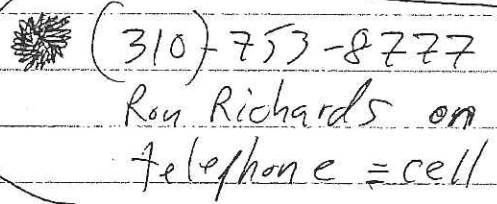 (310)-753-8777
Ron Richards on
telephone = cell